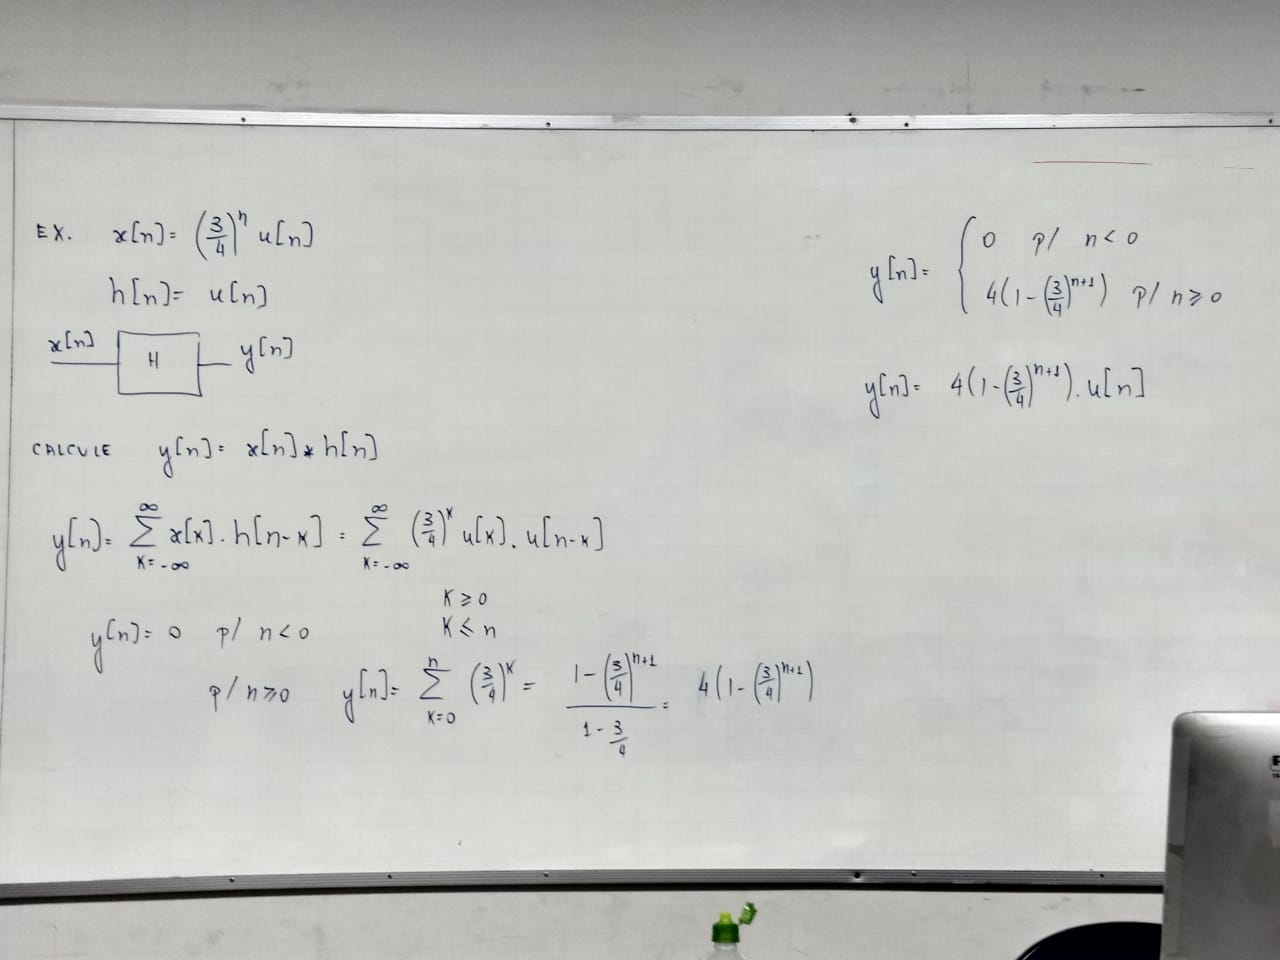 EX. x[n]= (3/4)^n u[n]
h[n]= u[n]
x[n] H y[n]
CALCULE y[n]= x[n] * h[n]
y[n]= ∑_{K=-∞}^{∞} x[K] . h[n-K] = ∑_{K=-∞}^{∞} (3/4)^K u[K] . u[n-K]
K ≥ 0
K ≤ n
y[n]= 0 p/ n<0
p/ n≥0 y[n]= ∑_{K=0}^{n} (3/4)^K = (1-(3/4)^{n+1})/(1-3/4) = 4(1-(3/4)^{n+1})
y[n]= { 0 p/ n<0
4(1-(3/4)^{n+1}) p/ n≥0
y[n]= 4(1-(3/4)^{n+1}) . u[n]